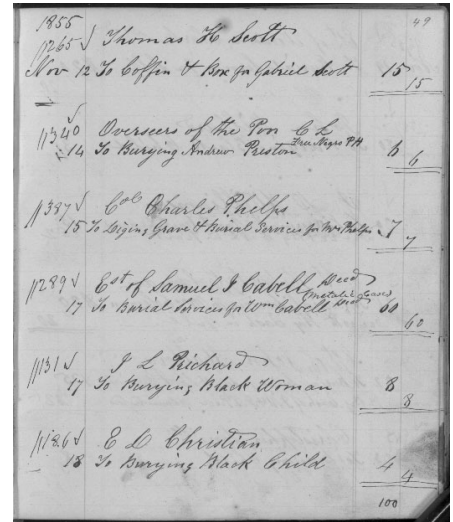 1855 49
11265 √ Thomas H Scott
Nov 12 To Coffin & Box for Gabriel Scott 15
15
11340 √ Overseers of the Poor C L
14 To Burying Andrew Preston Free Negro PH 6
6
11387 √ Col Charles Phelps
15 To Diging Grave & Burial Services for Mrs Phelps 7
7
11289 √ Est of Samuel J Cabell Decd
(Metalic Case)
17 To Burial Services for Wm Cabell Decd 60
60
11131 √ J L Prichard
17 To Burying Black Woman 8
8
11186 √ E D Christian
18 To Burying Black Child 4
4
100